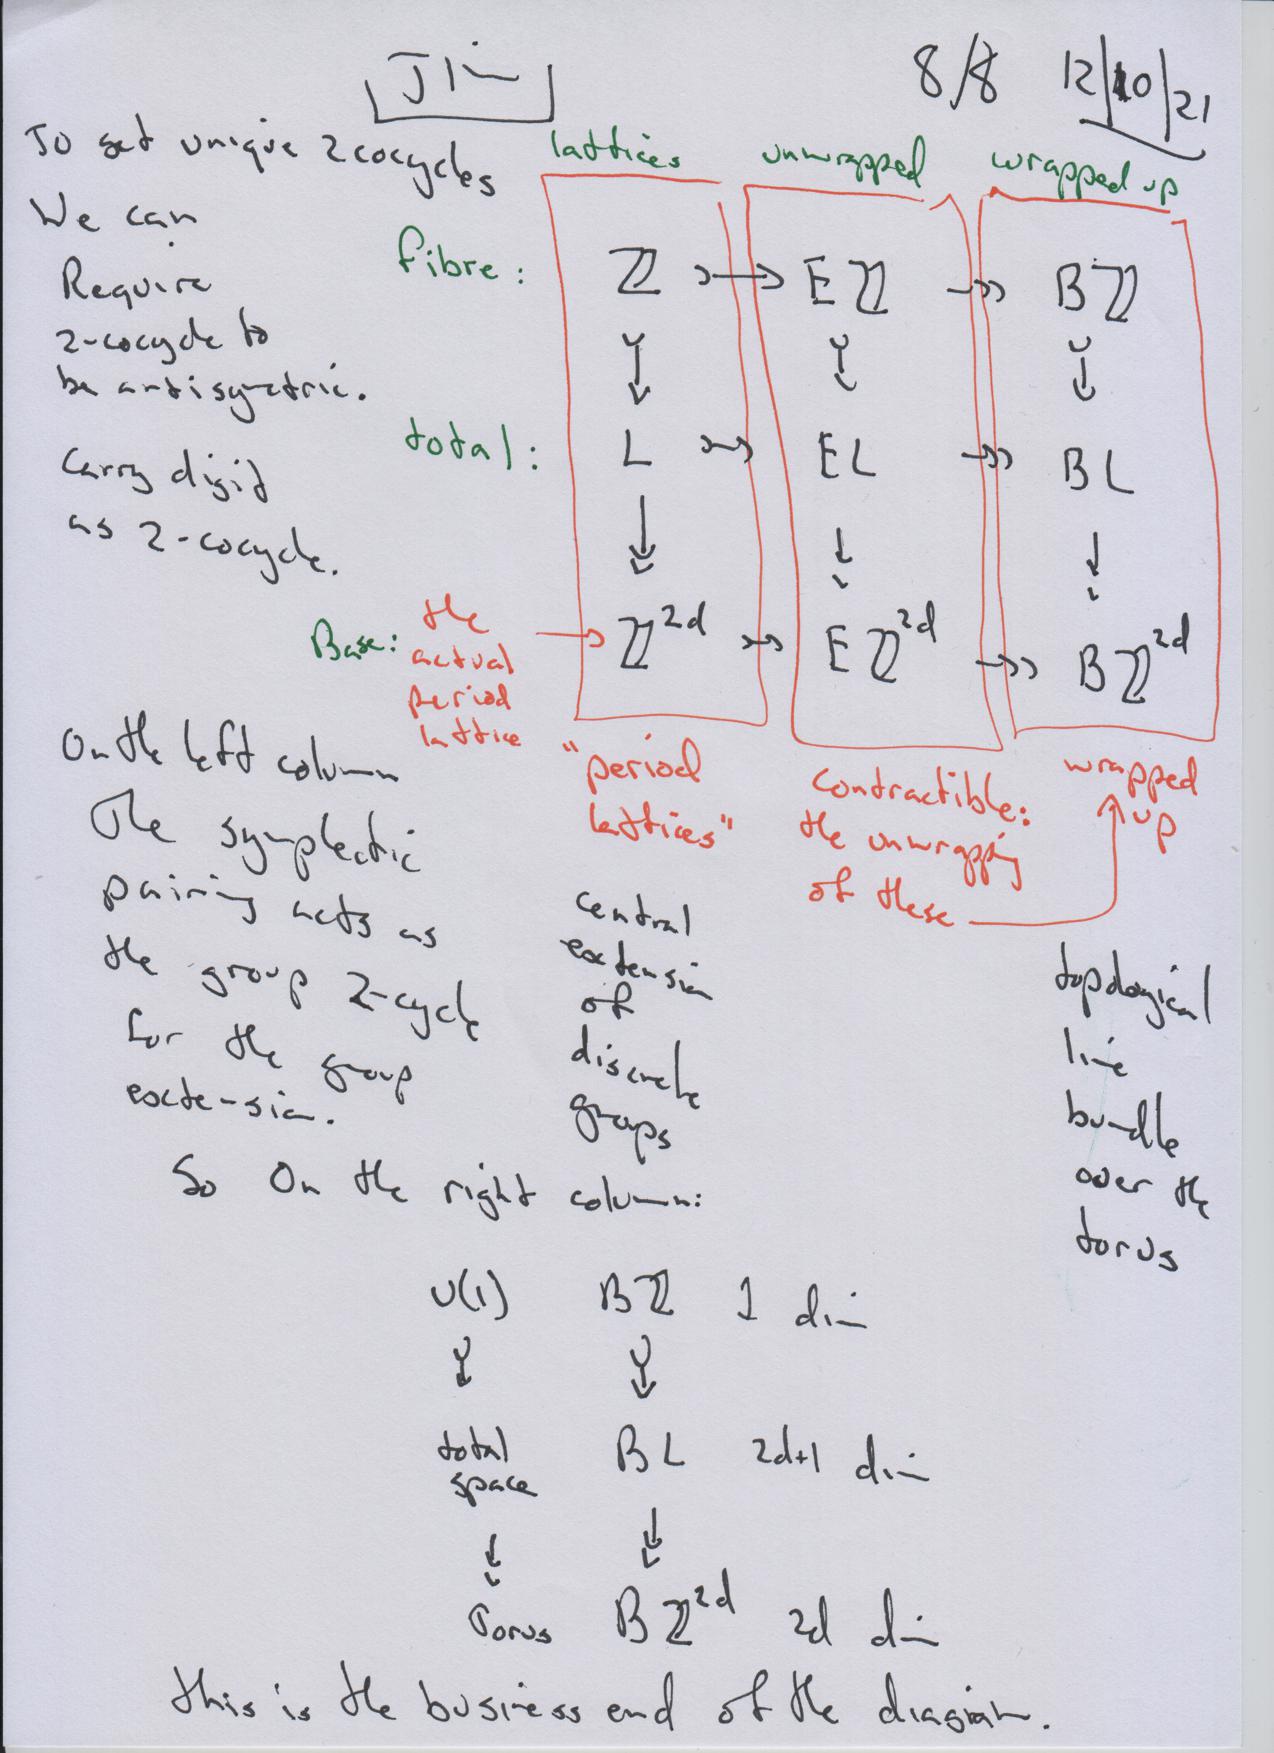 Jim
8/8 12/10/21
To get unique 2cocycles
We can
Require
2-cocycle to
be antisymetric.
Carry digit
as 2-cocycle.
lattices unwrapped wrapped up
fibre: ℤ → Eℤ ↠ Bℤ
total: L → EL ↠ BL
Base: the actual period lattice → ℤ^2d → Eℤ^2d ↠ Bℤ^2d
"period
lattices"
Contractible:
the unwrapping
of these
wrapped
up
On the left column
The symplectic
pairing acts as
the group 2-cycle
for the group
extension.
central
extension
of
discrete
groups
topological
line
bundle
over the
torus
So On the right column:
U(1) Bℤ 1 dim
total
space BL 2d+1 dim
Torus Bℤ^2d 2d dim
this is the business end of the diagram.